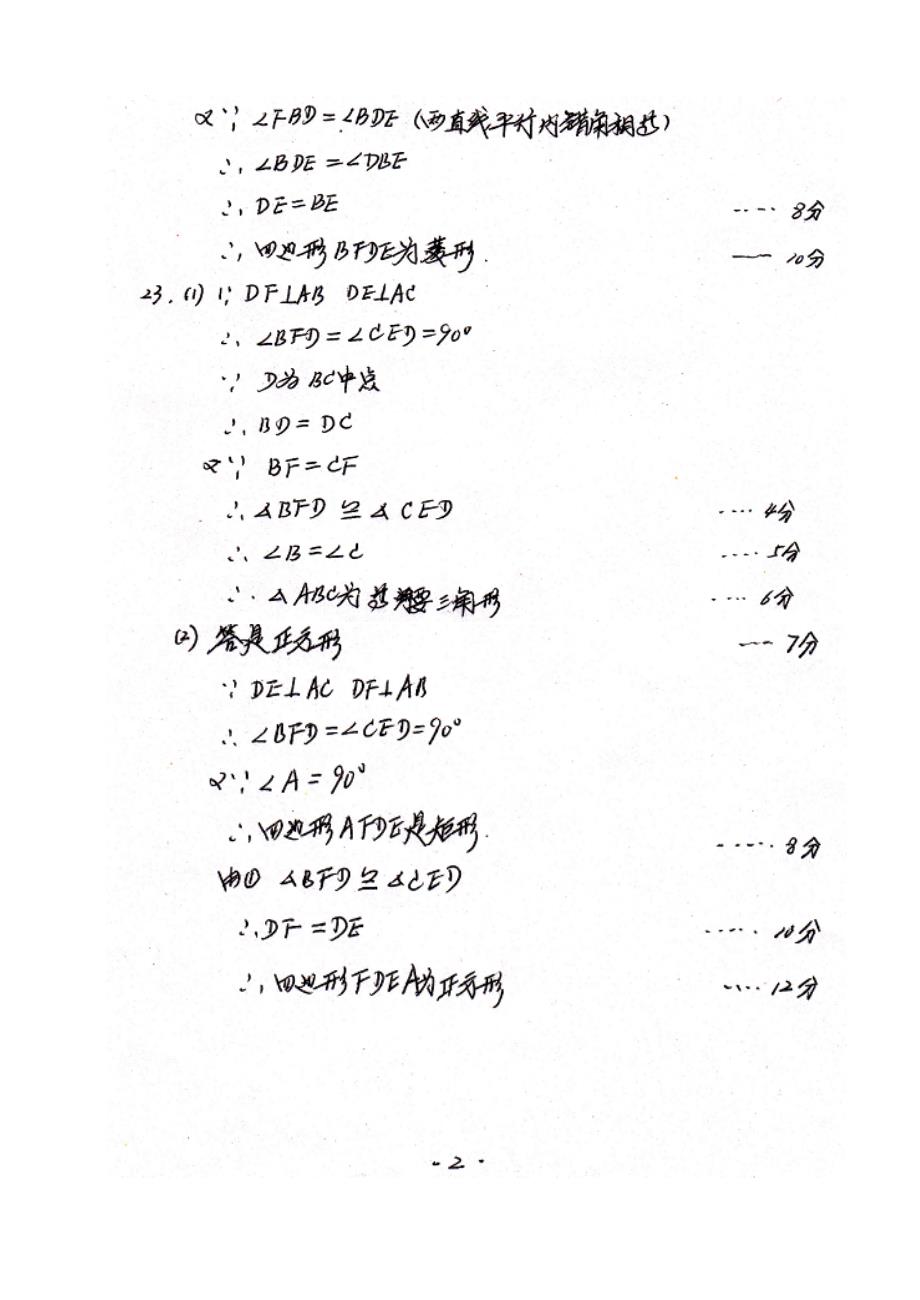 又∵ ∠FBD=∠BDE (两直线平行内错角相等)
∴ ∠BDE=∠DBE
∴ DE=BE ····· 8分
∴ 四边形BFDE为菱形. —— 10分
23. (1) ∵ DF⊥AB DE⊥AC
∴ ∠BFD=∠CED=90°
∵ D为BC中点
∴ BD=DC
又∵ BF=CF
∴ △BFD ≌ △CED ····· 4分
∴ ∠B=∠C ····· 5分
∴ △ABC为等腰三角形 ····· 6分
(2) 答是正方形 —— 7分
∵ DE⊥AC DF⊥AB
∴ ∠BFD=∠CED=90°
又∵ ∠A=90°
∴ 四边形AFDE是矩形. ····· 8分
由① △BFD≌△CED
∴ DF=DE ····· 10分
∴ 四边形FDEA为正方形 ····· 12分
·2·